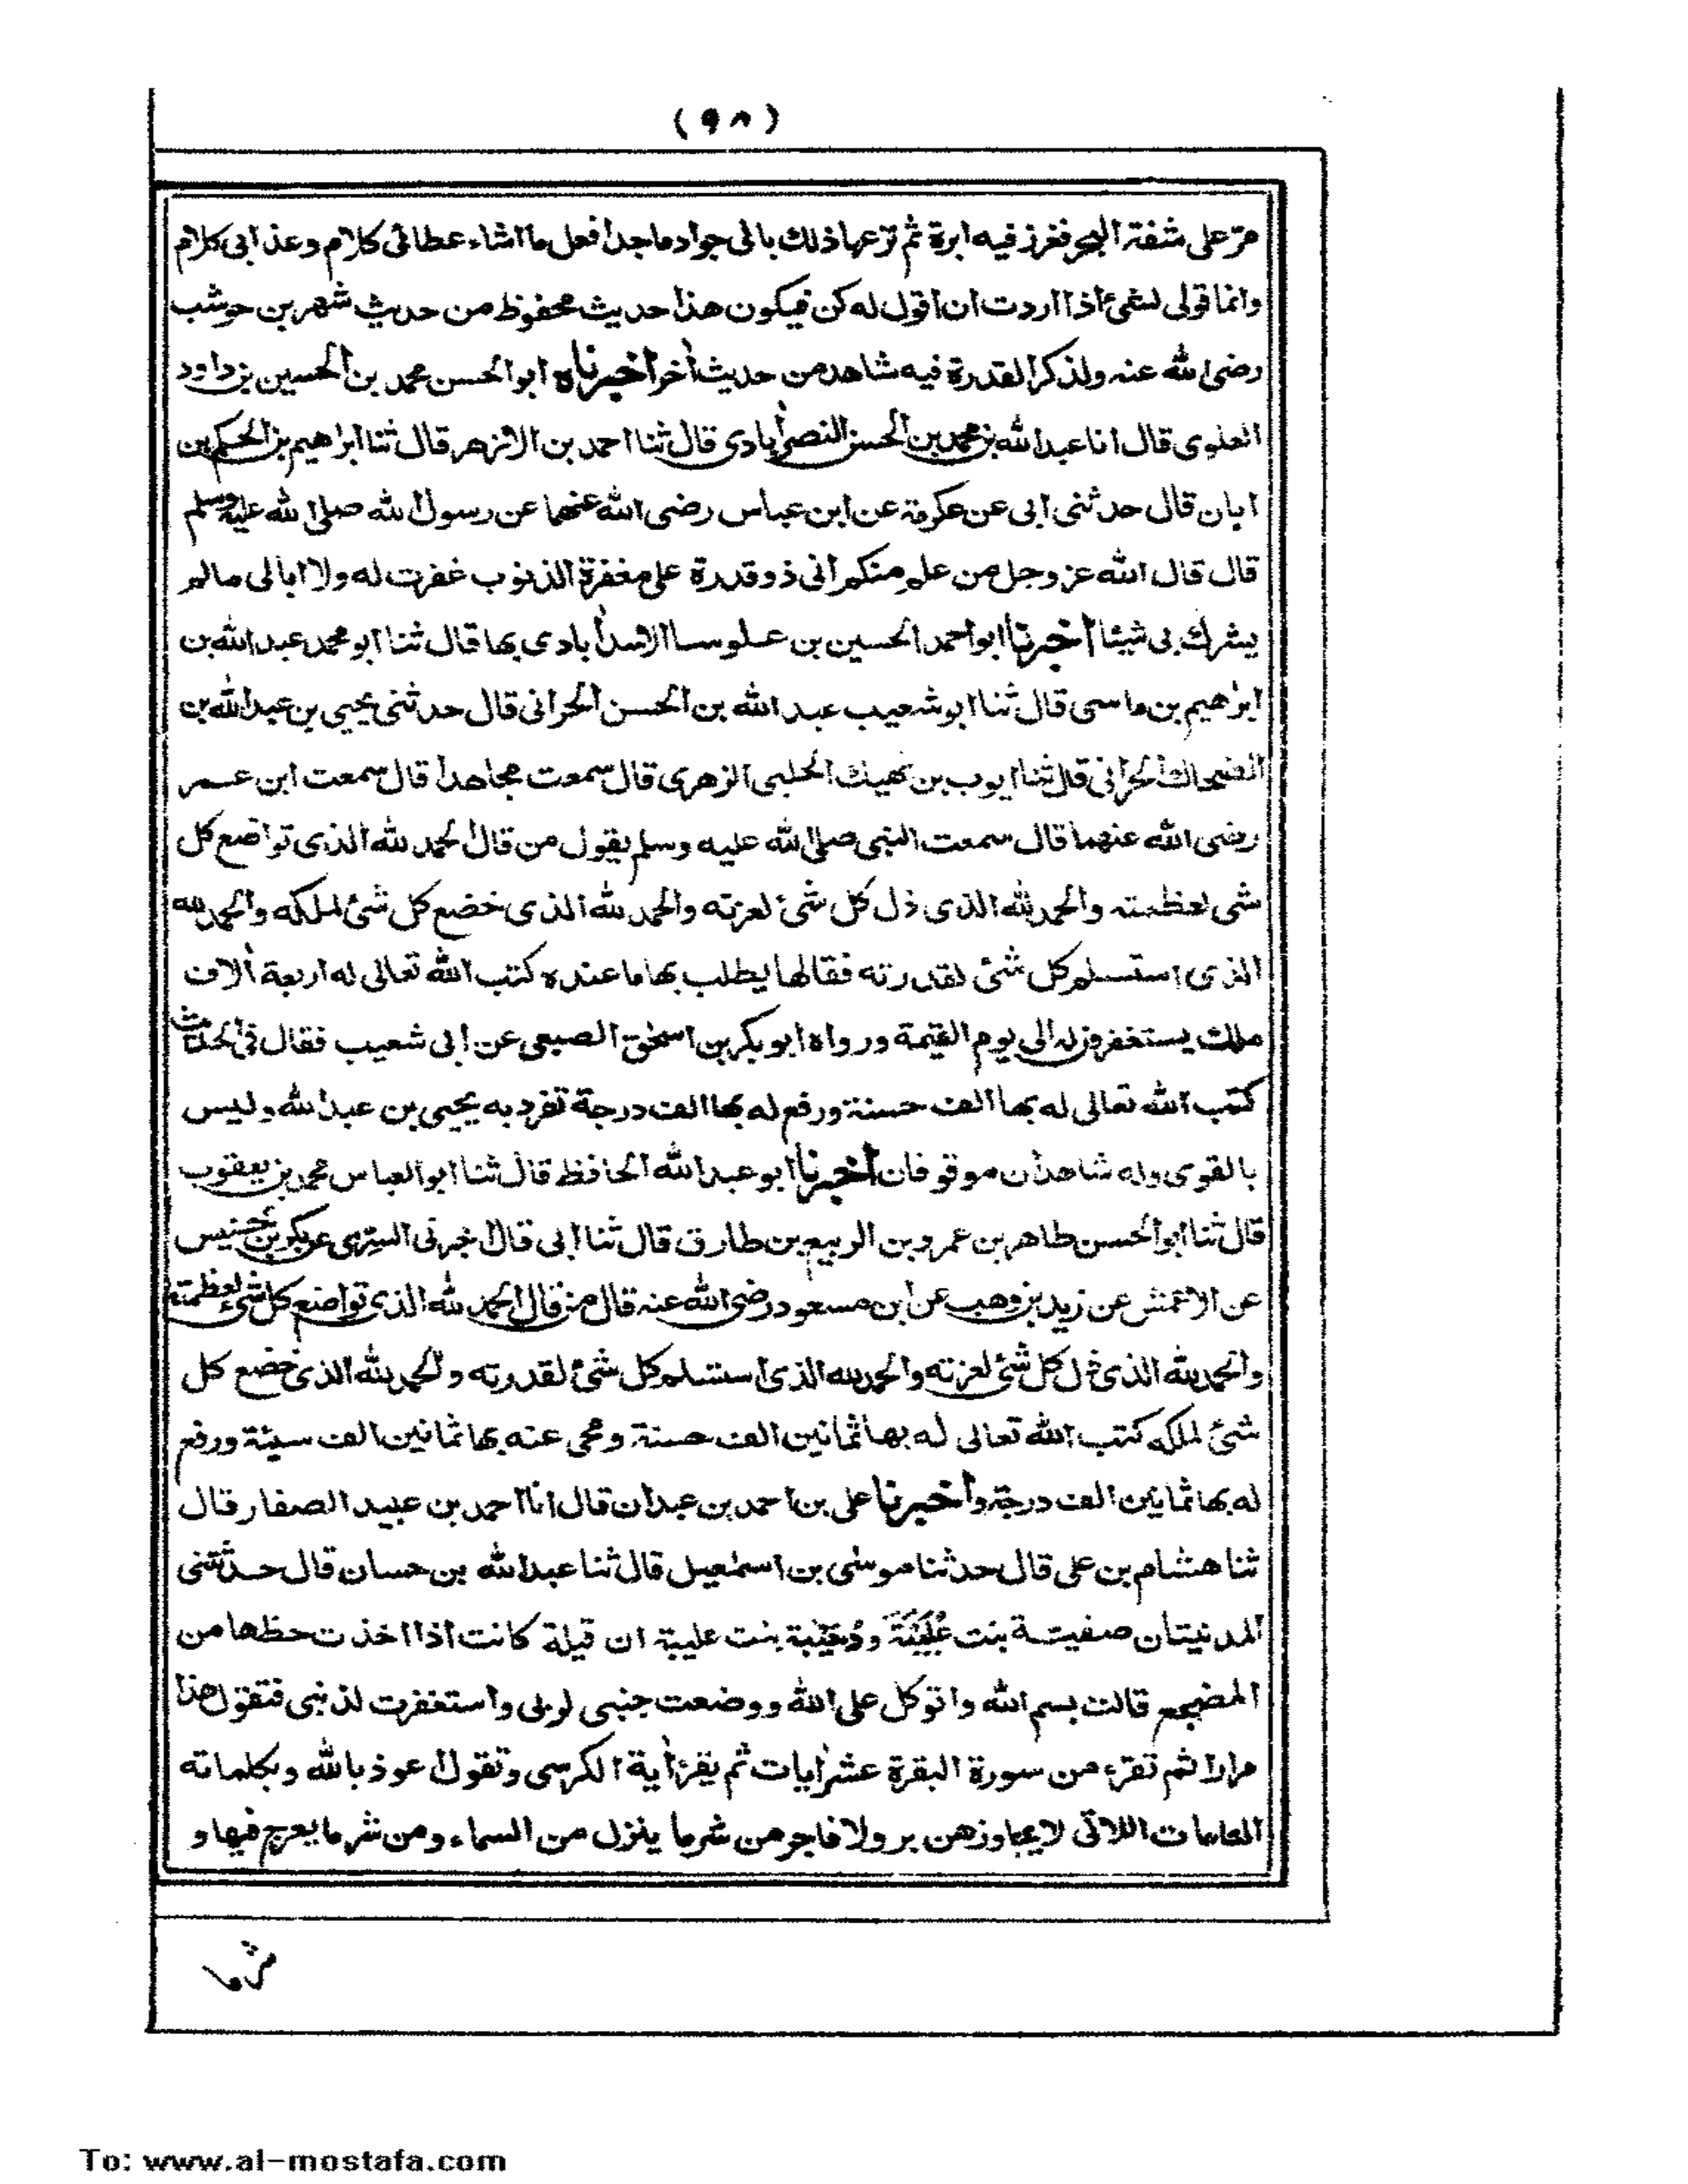 (٩٨)
مر على شفة البحر فغرز فيه ابرة ثم نزعها ذلك بانى جواد ماجد افعل ما اشاء عطائى كلام وعذابى كلام
وانما قولى لشئ اذا اردت ان اقول له كن فيكون هذا حديث محفوظ من حديث شهر بن حوشب
رضى الله عنه ولذكر القدرة فيه شاهد من حديث اٰخر اخبرناه ابو الحسن محمد بن الحسين بن داود
العلوى قال انا عبد الله بن محمد بن الحسن النصراٰبادى قال ثنا احمد بن الازهر قال ثنا ابرٰهيم بن الحكم بن
ابان قال حدثنى ابى عن عكرمة عن ابن عباس رضى الله عنهما عن رسول الله صلى الله عليه وسلم
قال قال الله عز وجل من علم منكم انى ذو قدرة على مغفرة الذنوب غفرت له ولا ابالى ما لم
يشرك بى شيئا اخبرنا ابو احمد الحسين بن علوسا الاسداٰبادى بها قال ثنا ابو محمد عبد الله بن
ابرٰهيم بن ماسى قال ثنا ابو شعيب عبد الله بن الحسن الحرانى قال حدثنى يحيى بن عبد الله بن
الضحاك الحرانى قال ثنا ايوب بن نهيك الحلبى الزهرى قال سمعت مجاهدا قال سمعت ابن عمر
رضى الله عنهما قال سمعت النبى صلى الله عليه وسلم يقول من قال الحمد لله الذى تواضع كل
شى لعظمته والحمد لله الذى ذل كل شئ لعزته والحمد لله الذى خضع كل شئ لملكه والحمد لله
الذى استسلم كل شئ لقدرته فقالها يطلب بها ما عنده كتب الله تعالى له اربعة اٰلاف
ملك يستغفرون له الى يوم القيمة ورواه ابو بكر بن اسحٰق الصبغى عن ابى شعيب فقال فى الحديث
كتب الله تعالى له بها الف حسنة ورفع له بها الف درجة تفرد به يحيى بن عبد الله وليس
بالقوى وله شاهدان موقوفان اخبرنا ابو عبد الله الحافظ قال ثنا ابو العباس محمد بن يعقوب
قال ثنا ابو الحسن طاهر بن عمرو بن الربيع بن طارق قال ثنا ابى قال اخبرنى السرى عن بكر بن خنيس
عن الاعمش عن زيد بن وهب عن ابن مسعود رضى الله عنه قال من قال الحمد لله الذى تواضع كل شئ لعظمته
والحمد لله الذى ذل كل شئ لعزته والحمد لله الذى استسلم كل شئ لقدرته والحمد لله الذى خضع كل
شئ لملكه كتب الله تعالى له بها ثمانين الف حسنة ومحى عنه بها ثمانين الف سيئة ورفع
له بها ثمانين الف درجة واخبرنا على بن احمد بن عبدان قال انا احمد بن عبيد الصفار قال
ثنا هشام بن على قال حدثنا موسٰى بن اسمٰعيل قال ثنا عبد الله بن حسان قال حدثتنى
المدنيتان صفيتة بنت عُلَيْبَةَ ودُحَيْبة بنت عليبة ان قيلة كانت اذا اخذت حظها من
المضجع قالت بسم الله واتوكل على الله ووضعت جنبى لربى واستغفرت لذنبى فتقول هذا
مرارا ثم تقرء من سورة البقرة عشر اٰيات ثم يقرأ اٰية الكرسى وتقول اعوذ بالله وبكلماته
التامات اللاتى لا يجاوزهن بر ولا فاجر من شر ما ينزل من السماء ومن شر ما يعرج فيها و
شرما
To: www.al-mostafa.com